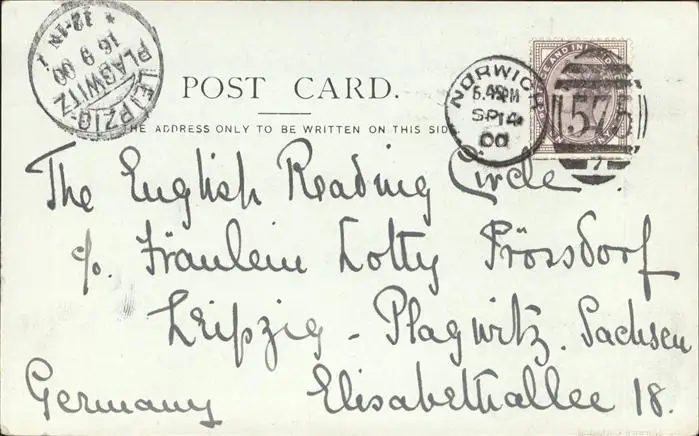 LEIPZIG-PLAGWITZ
16 9 00
* 12-1N 1
POST CARD.
THE ADDRESS ONLY TO BE WRITTEN ON THIS SIDE
NORWICH
6.45PM
SP 14
00
E AND IN
575
The English Reading Circle.
c/o. Fräulein Lotty Prössdorf
Leipzig - Plagwitz. Sachsen
Germany Elisabethallee 18.